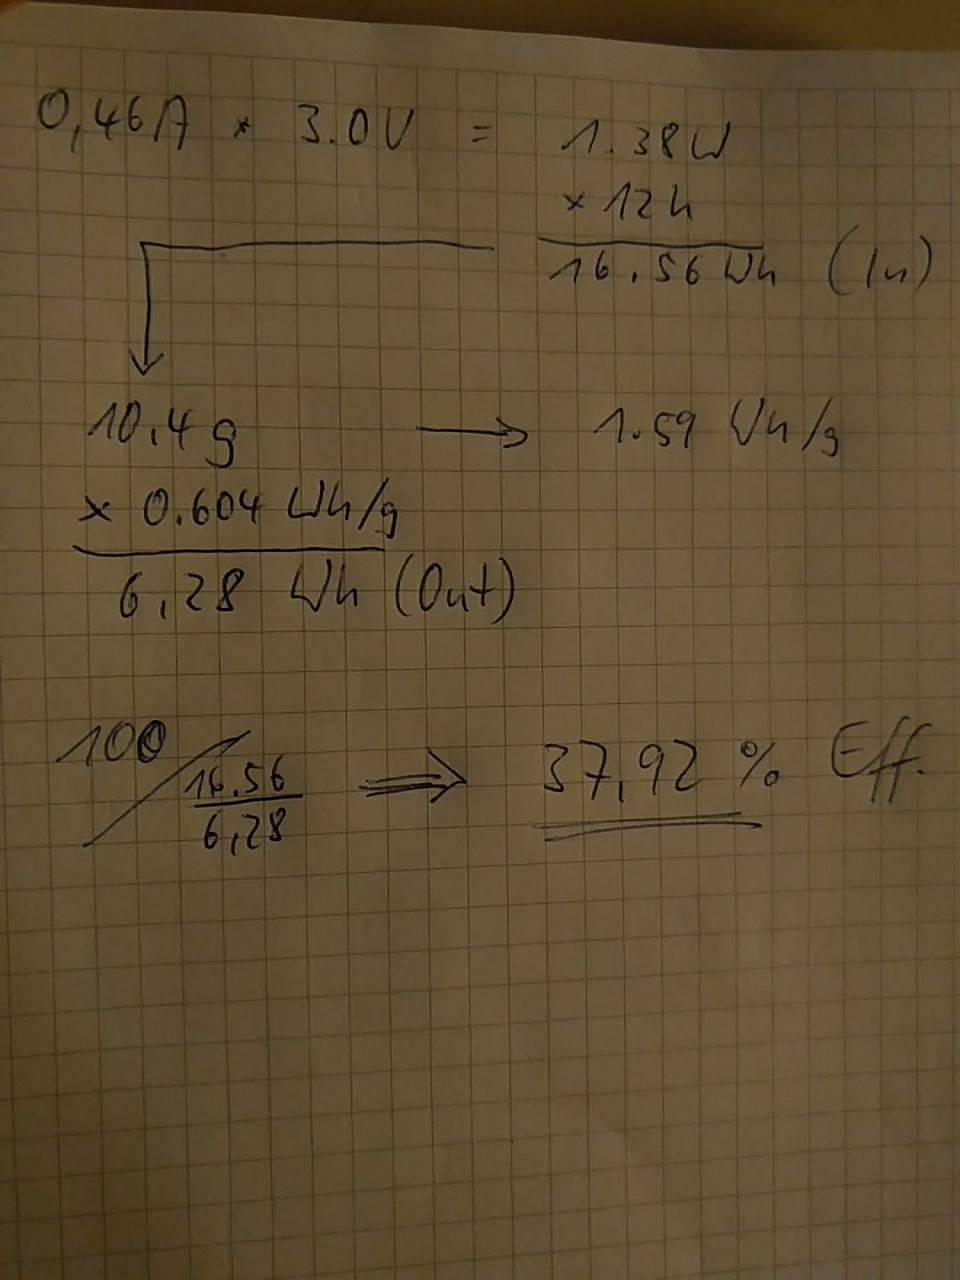 0,46A × 3.0V = 1.38W
× 12h
16.56 Wh (In)
10.4g → 1.59 Wh/g
× 0.604 Wh/g
6,28 Wh (Out)
100 / 16.56 ⇒ 37,92 % Eff.
6,28